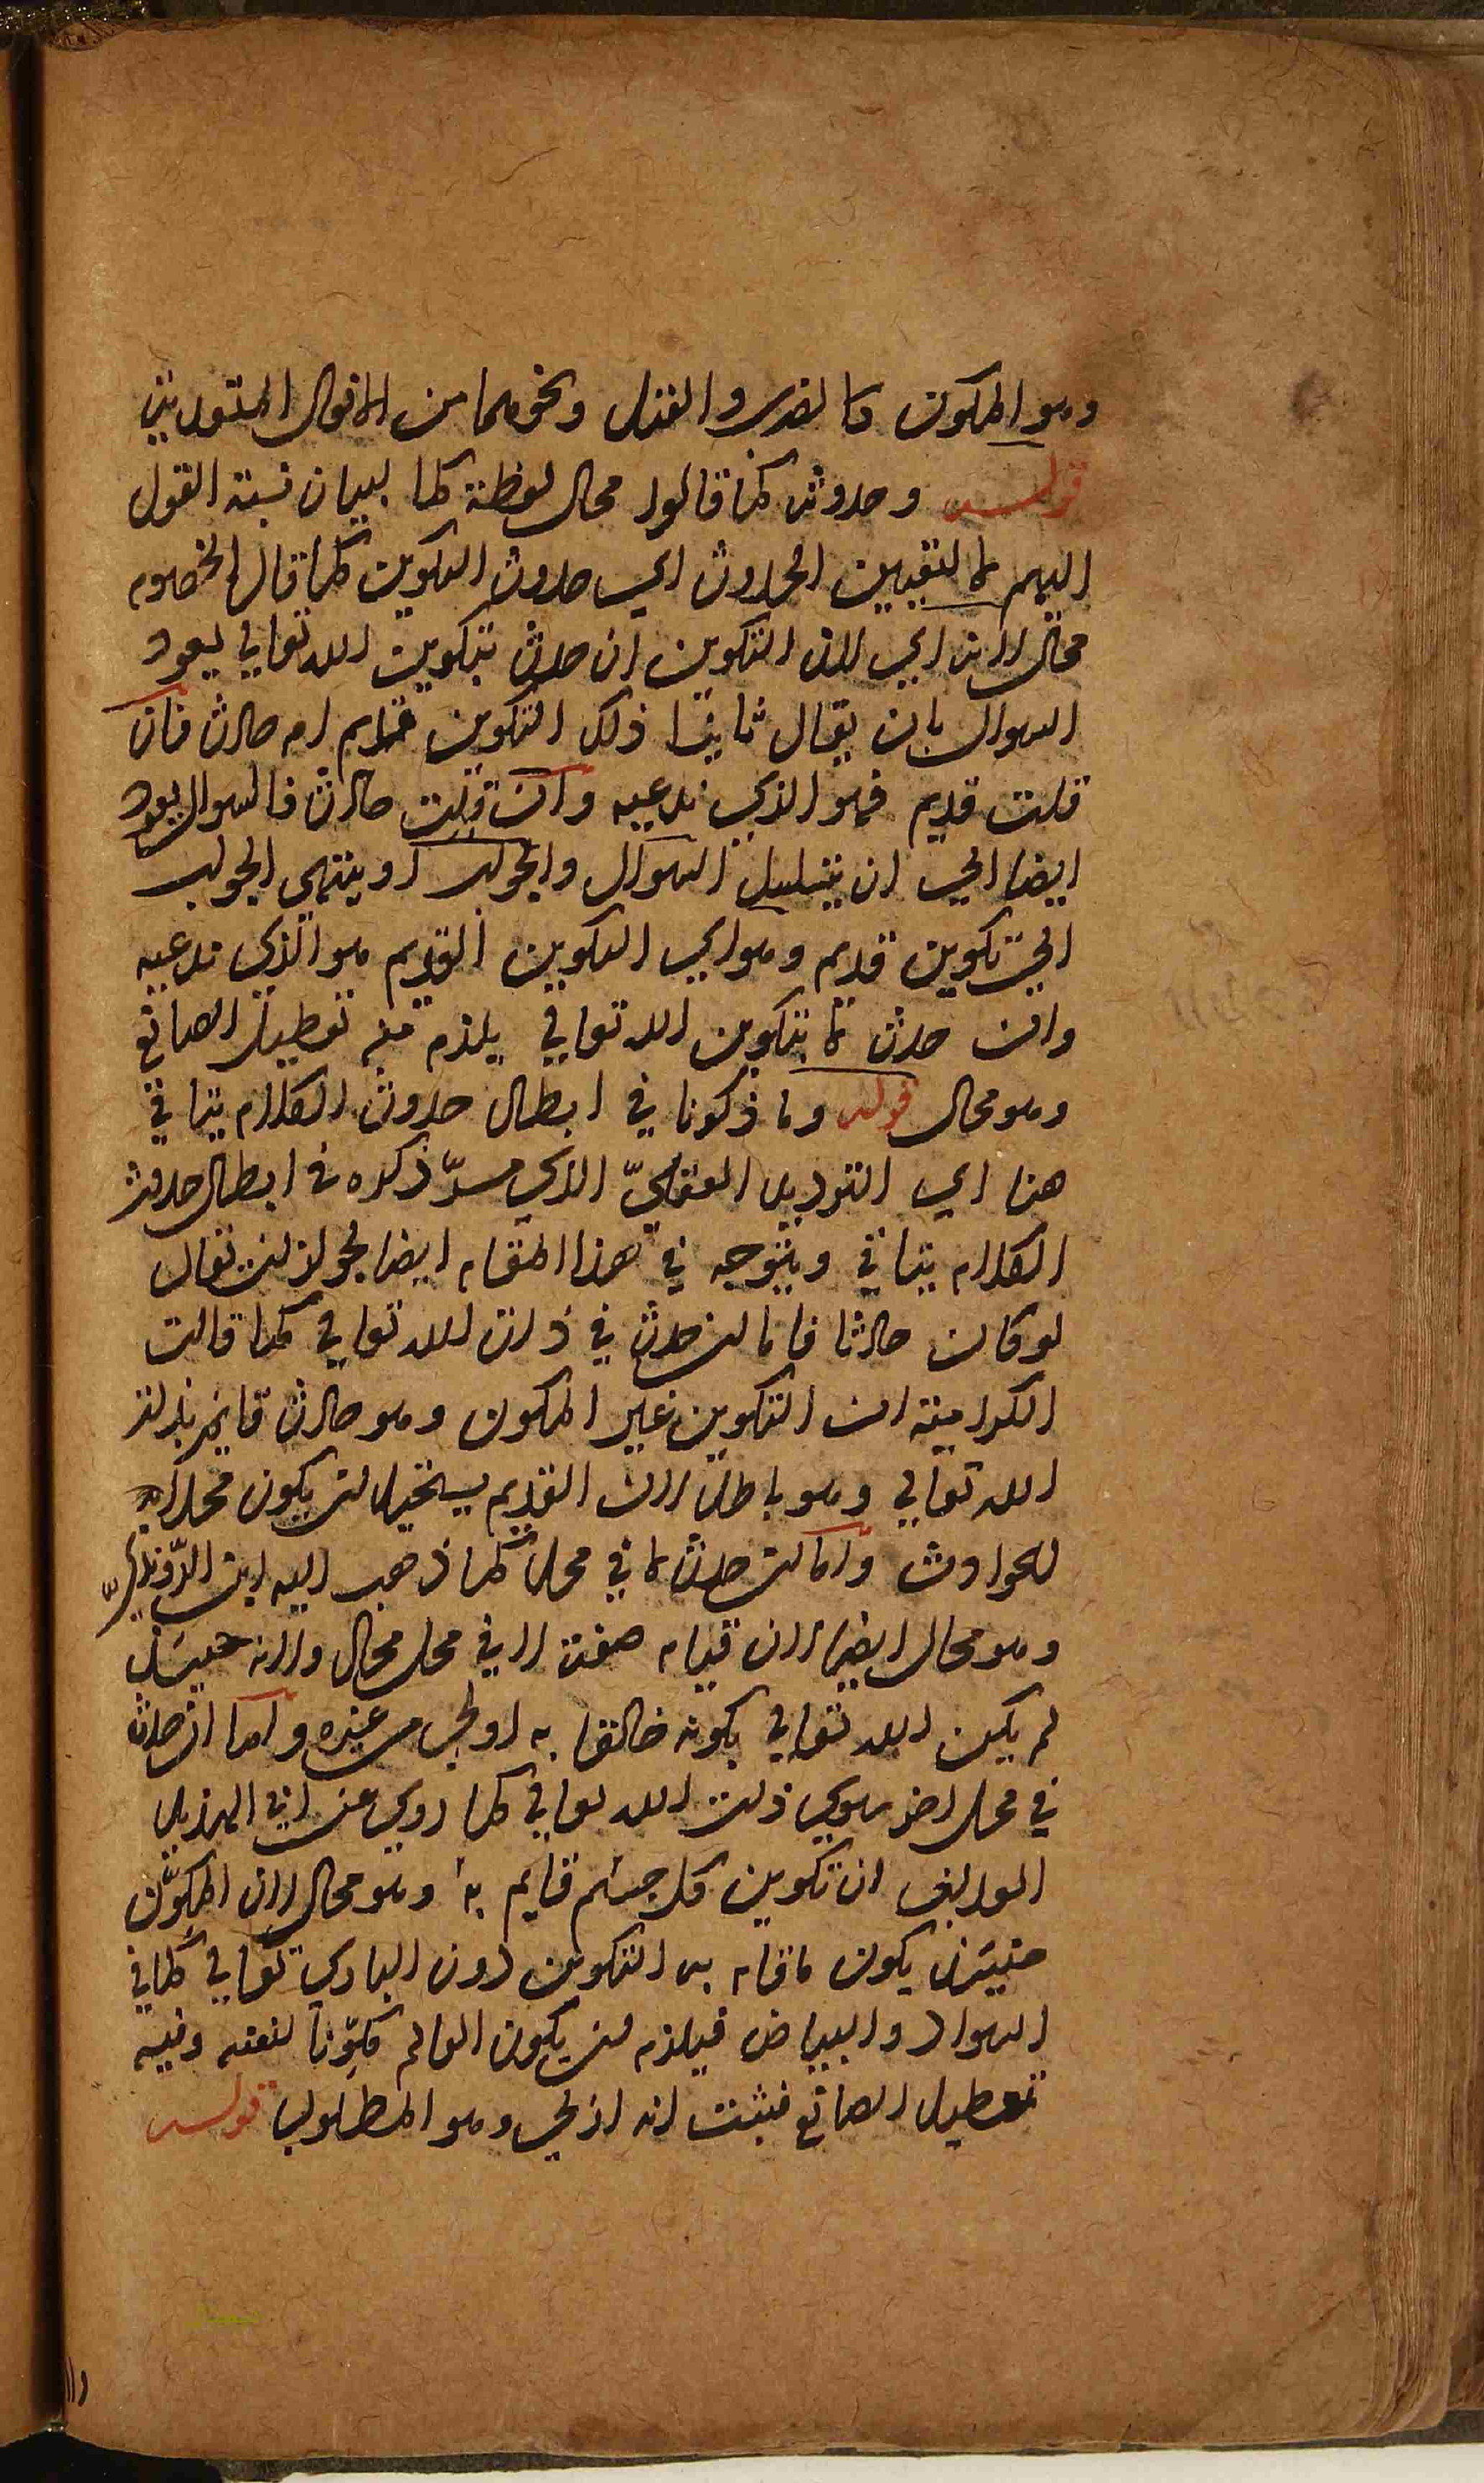 وهو المكون كالضرب والقتل ونحوهما من الافعال المتعدية
قوله وحدوثه كما قالوا محال لفظة كما لبيان نسبة القول
اليهم لا لتقييد الحدوث اي حدوث التكوين كما قال الخصوم
محال لانه اي لان التكوين ان حدث بتكوين الله تعالى يعود
السوال بان يقال ثانيا ذلك التكوين قديم ام حادث فان
قلت قديم فهو الذي ندعيه وان قلت حادث فالسوال يعود
ايضا الى ان يتسلسل السوال والجواب او ينتهى الجواب
الى تكوين قديم وهو اي التكوين القديم هو الذي ندعيه
وان حدث لا بتكوين الله تعالى يلزم منه تعطيل الصانع
وهو محال قوله وما ذكرنا في ابطال حدوث الكلام يتاتى
هنا اي الترديد العقلي الذي مر ذكره في ابطال حدوث
الكلام يتاتى ويتوجه في هذا المقام ايضا بجواز ان نقال
لو كان حادثا فاما ان حدث في ذات الله تعالى كما قالت
الكرامية ان التكوين غير المكون وهو حادث قايم بذات
الله تعالى وهو باطل لان القديم يستحيل ان يكون محلا
للحوادث واما ان حدث لا في محل كما ذهب اليه ابن الروندي
وهو محال ايضا لان قيام صفة لا في محل محال ولانه حينئذ
لم يكن الله تعالى بكونه خالقا به اولى من غيره واما ان حدث
في محل اخر سوى ذات الله تعالى كما روي عن ابي الهذيل
العلاف ان تكوين كل جسم قايم به وهو محال لان المكوّن
حينئذ يكون ما قام به التكوين دون الباري تعالى كما في
السواد والبياض فيلزم ان يكون العالم مكوّنا لنفسه وفيه
تعطيل الصانع فثبت انه ازلى وهو المطلوب قوله